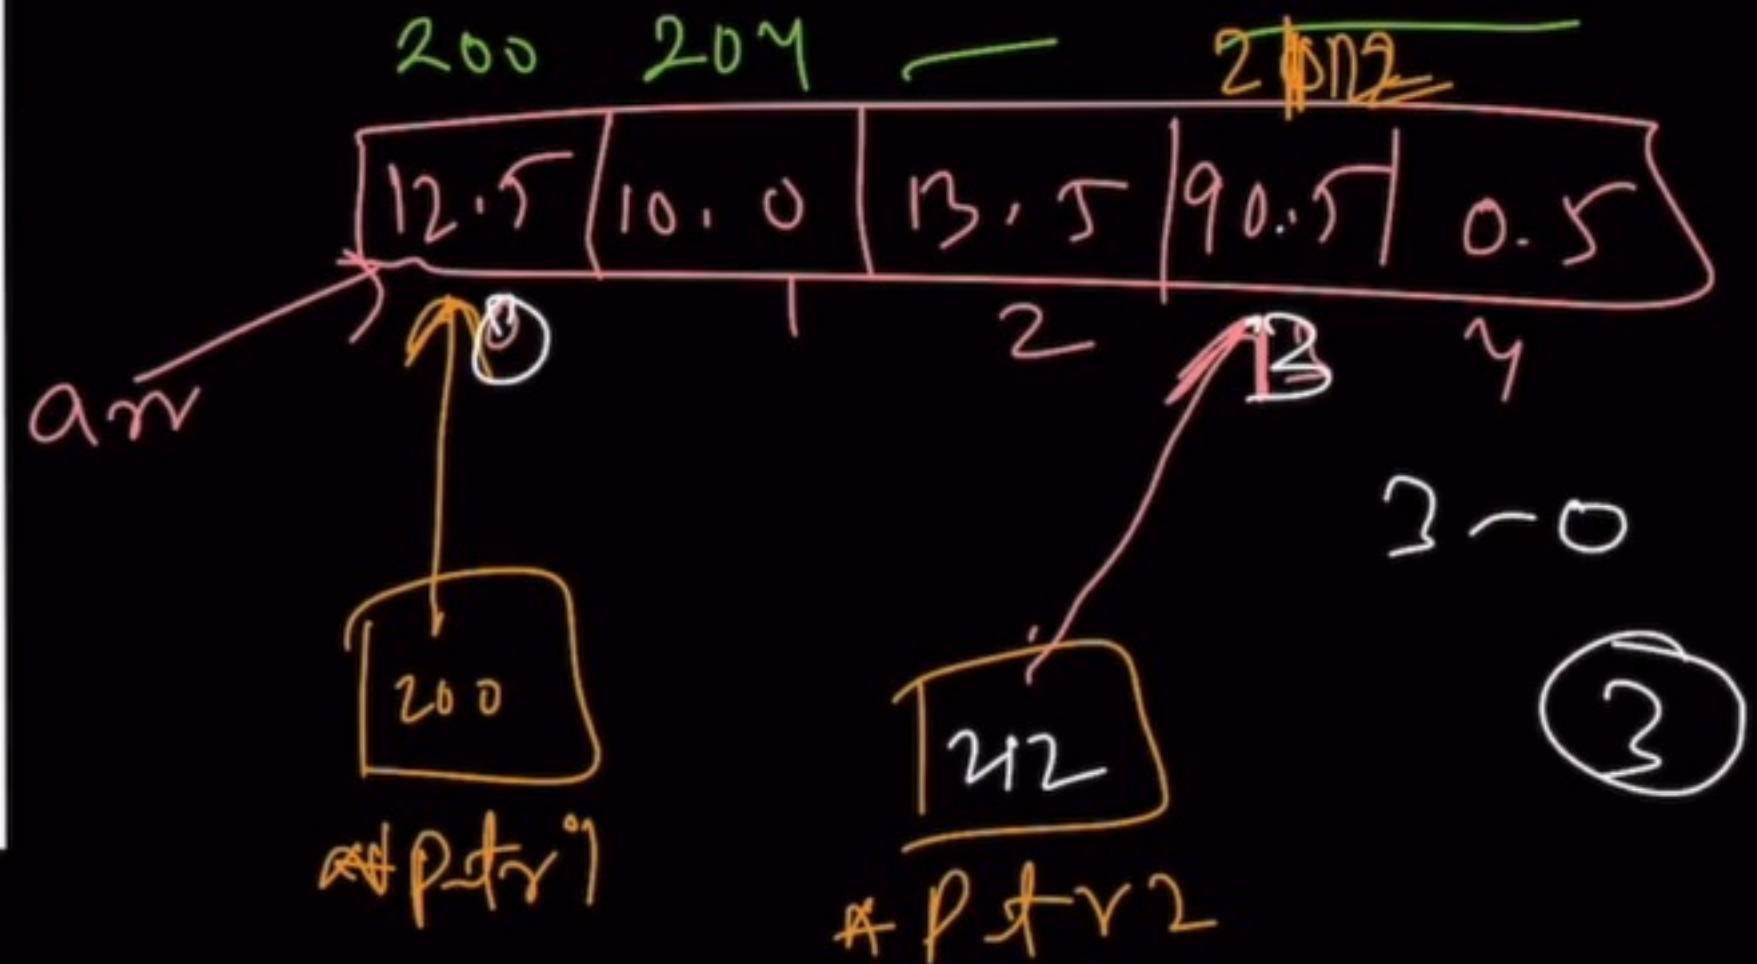 200 204
12.5 10.0 13.5 90.5 0.5
0 1 2 3 4
arr
3-0
200
212
3
*ptr1
*ptr2